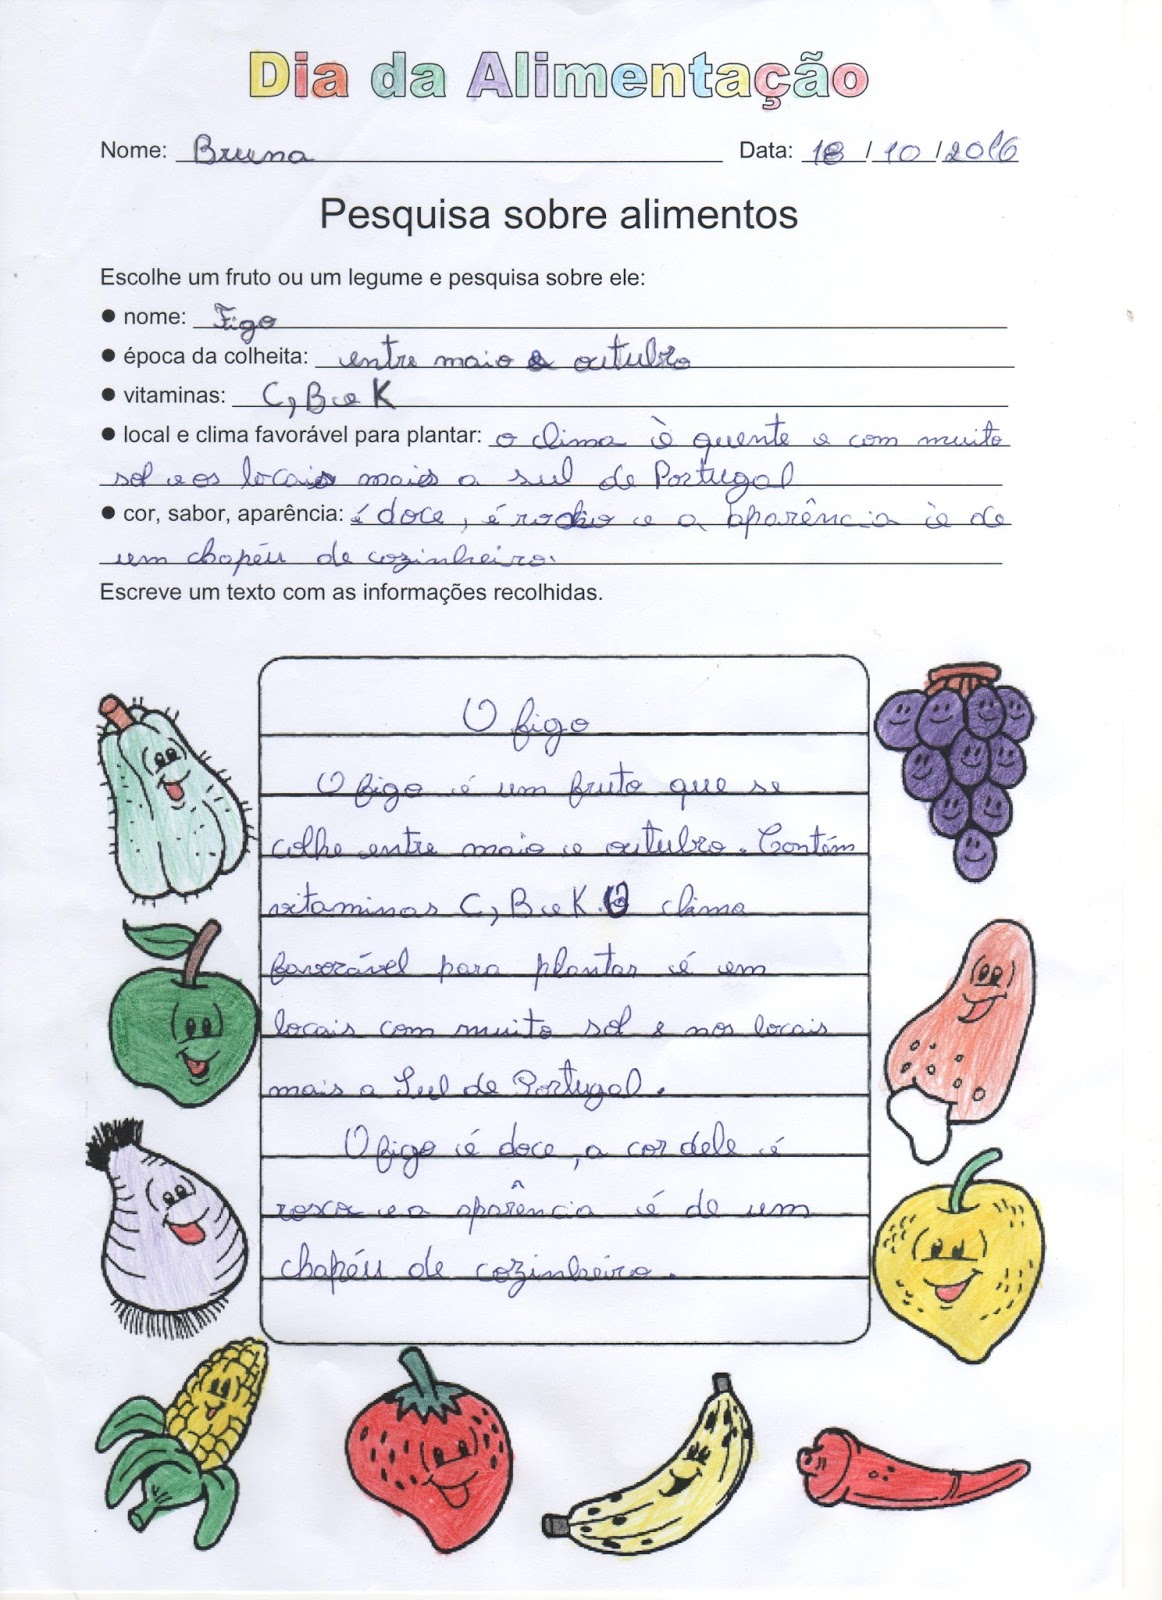 Dia da Alimentação
Nome: Bruna Data: 18/10/2016
Pesquisa sobre alimentos
Escolhe um fruto ou um legume e pesquisa sobre ele:
● nome: Figo
● época da colheita: entre maio e outubro
● vitaminas: C, B e K
● local e clima favorável para plantar: o clima è quente e com muito
sol e os locais mais a sul de Portugal
● cor, sabor, aparência: é doce, é roxo e a aparência è de
um chapéu de cozinheiro.
Escreve um texto com as informações recolhidas.
O figo
O figo é um fruto que se
colhe entre maio e outubro. Contém
vitaminas C, B e K. O clima
favorável para plantar é em
locais com muito sol e nos locais
mais a Sul de Portugal.
O figo é doce, a cor dele é
roxa e a aparência é de um
chapéu de cozinheiro.